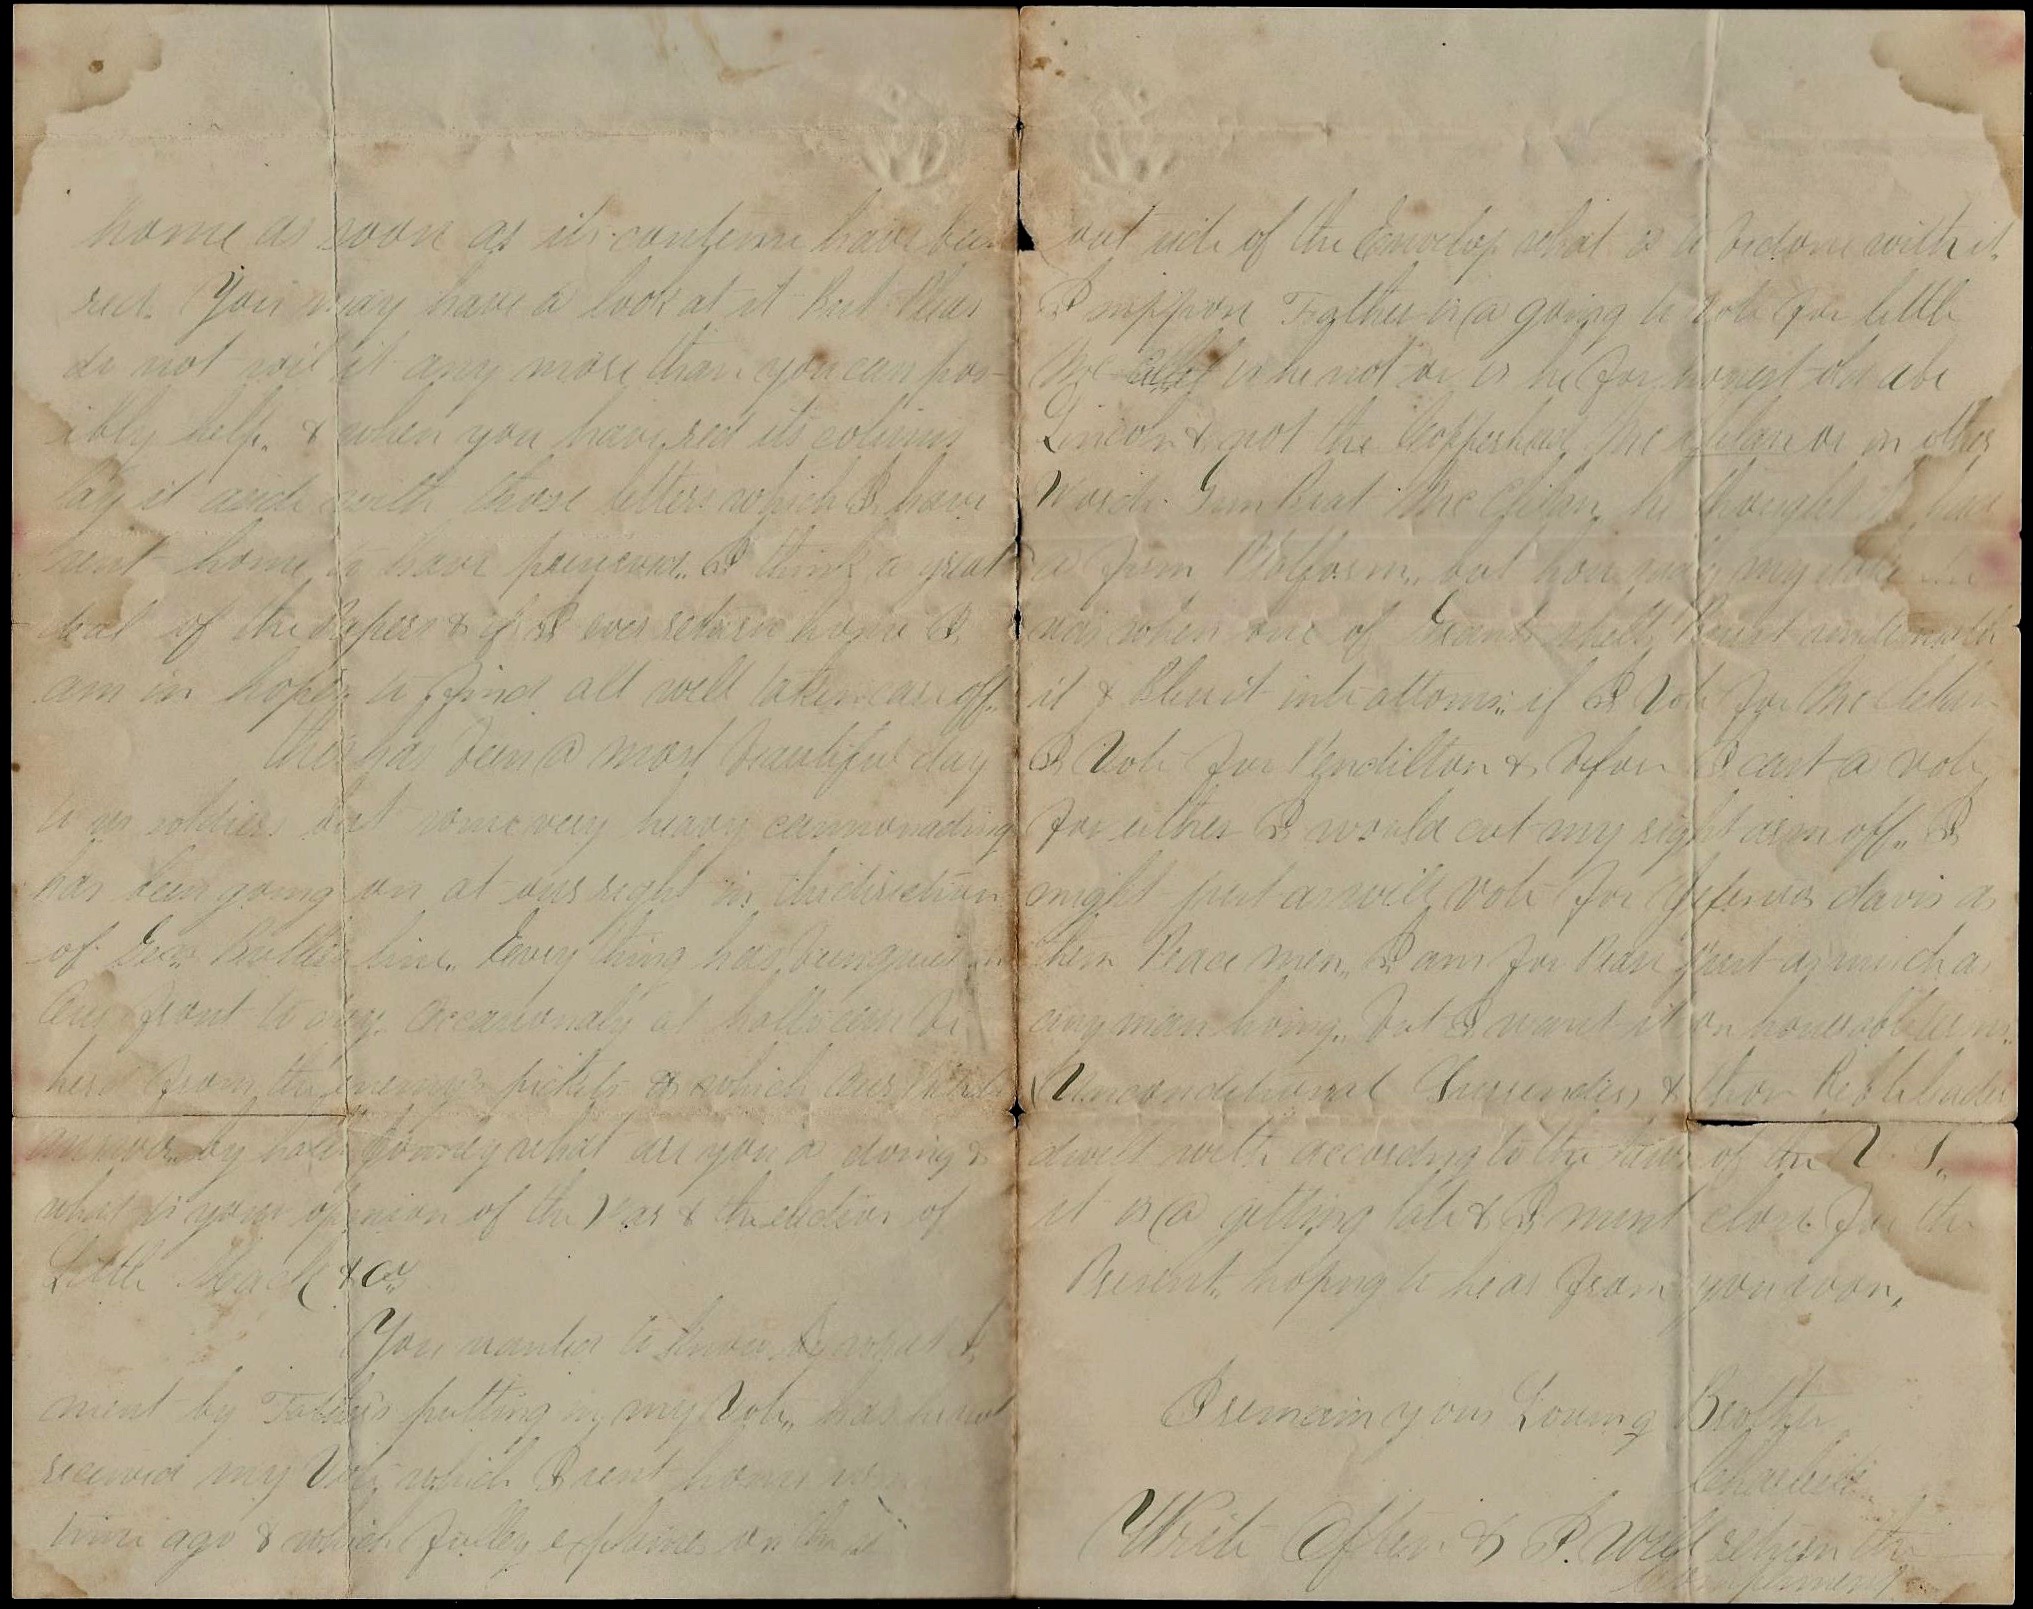 home as soon as its contense have been
red. You may have a look at it But Pleas
do not soil it any more than you can pos-
ibly help. & when you have red its colums
lay it aside with those letters which I have
sent home to have preserved. I think a great
deal of the Papers & if I ever return home I
am in hopes to find all well taken care off.
this has been a most beautiful day
to us soldiers but some very heavy cannonading
has been going on at our right in the direction
of Gen. Butlers line. Every thing has been quiet in
Our front to day. Occasionaly a hollo can be
herd from the enemy's pickets which Our Pickets
answer by Johney what are you a doing &
what is your opinion of the War & the election of
Little Mack & Co.
You wanted to know what I
ment by Father's putting in my Vote. has he not
received my Vote which I sent home some
time ago & which fulley explaines on the
out side of the Envelop what is to be done with it.
I suppose Father is a going to vote for little
Mc is he not or is he for honest old abe
Lincoln & not the Copperhead Mc or in other
Words Gun Boat Mc Clelan he thought he had
a firm Platform, but how
when one of Grants shells
it & Blew it into attoms. if I Vote for Mc Clelan
I Vote for Pendilton & before I cast a vote
for either I would cut my right arm off. I
might just as well vote for Jeferson davis as
them Peace men. I am for Peace just as much as
any man living. but I want it on honerable terms.
Unconditional Surender, & those Reble leaders
dwelt with according to the laws of the U. S.
it is a getting late & I must close for the
Present. hoping to hear from you soon.
I remain your Loving Brother
Charlie
Write Often & I will return the
Compliment